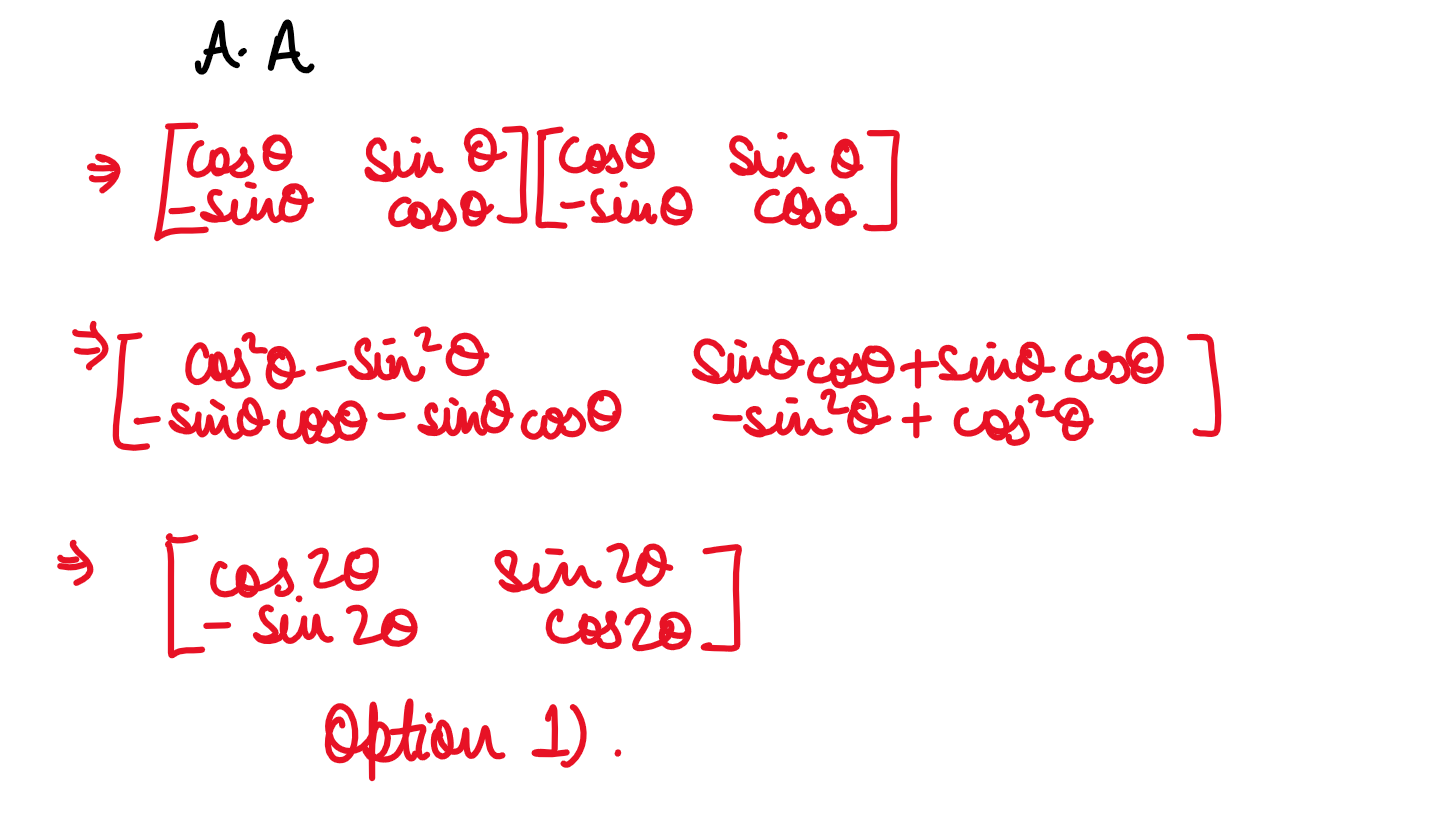 A. A
⇒ [cosθ sin θ] [cosθ sin θ]
[-sinθ cosθ] [-sinθ cosθ]
⇒ [cos²θ - sin²θ sinθ cosθ + sinθ cosθ]
[-sinθ cosθ - sinθ cosθ -sin²θ + cos²θ]
⇒ [cos 2θ sin 2θ]
[- sin 2θ cos2θ]
Option 1) .